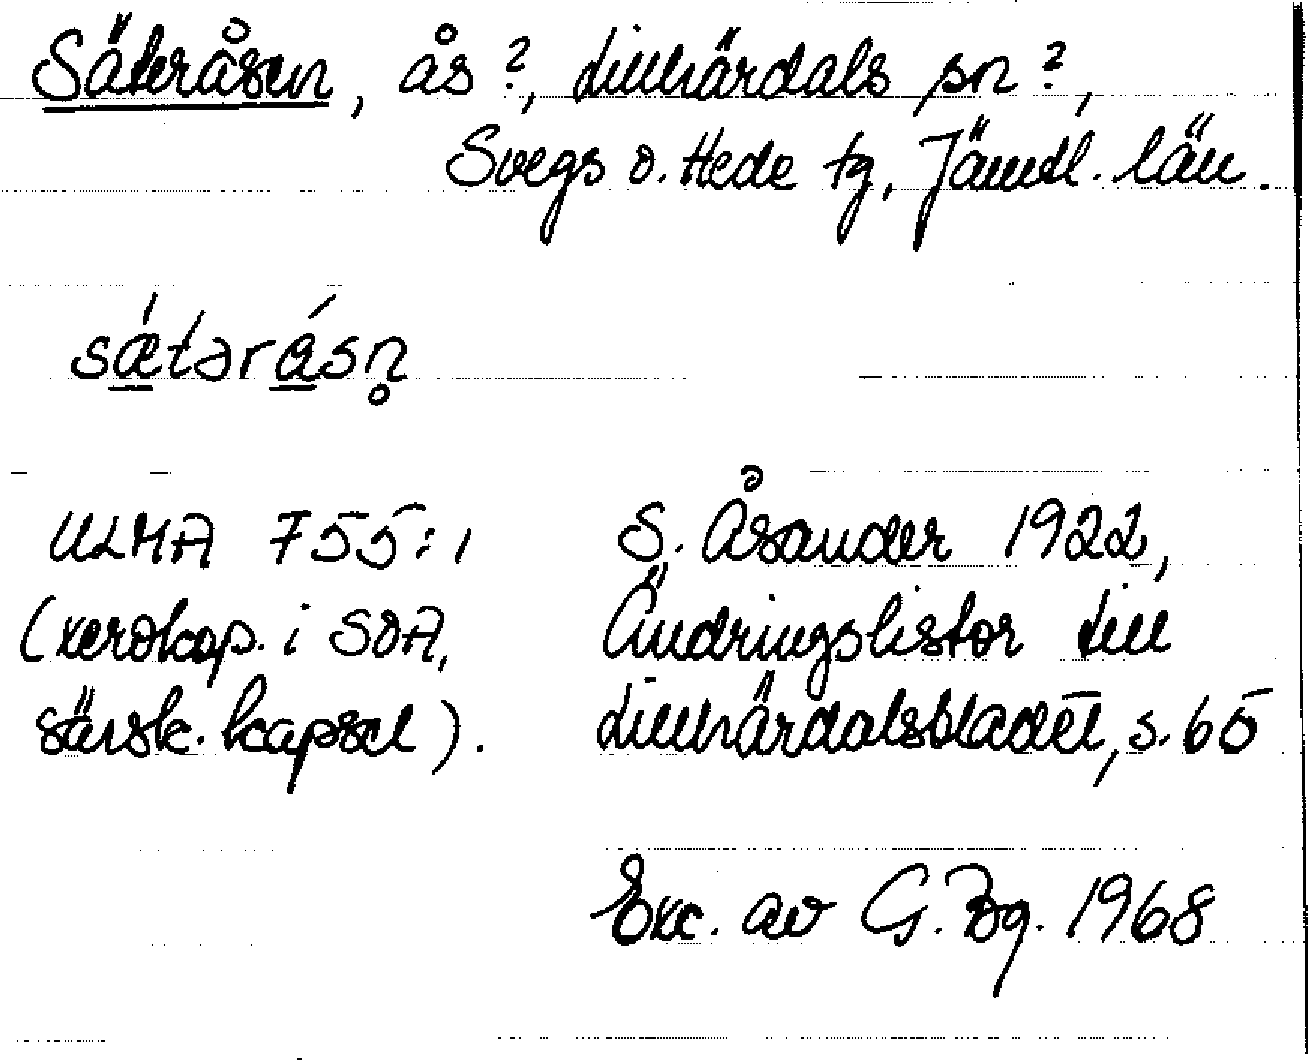 Säteråsen, ås?, Lillhärdals sn?,
Svegs o. Hede tg, Jämtl. län.
sǽtərásn̥
ULMA 755:1
(xerokop. i SOA,
särsk. kapsel).
S. Åsander 1922,
Ändringslistor till
Lillhärdalsbladet, s. 65
Exc. av G. Bg. 1968